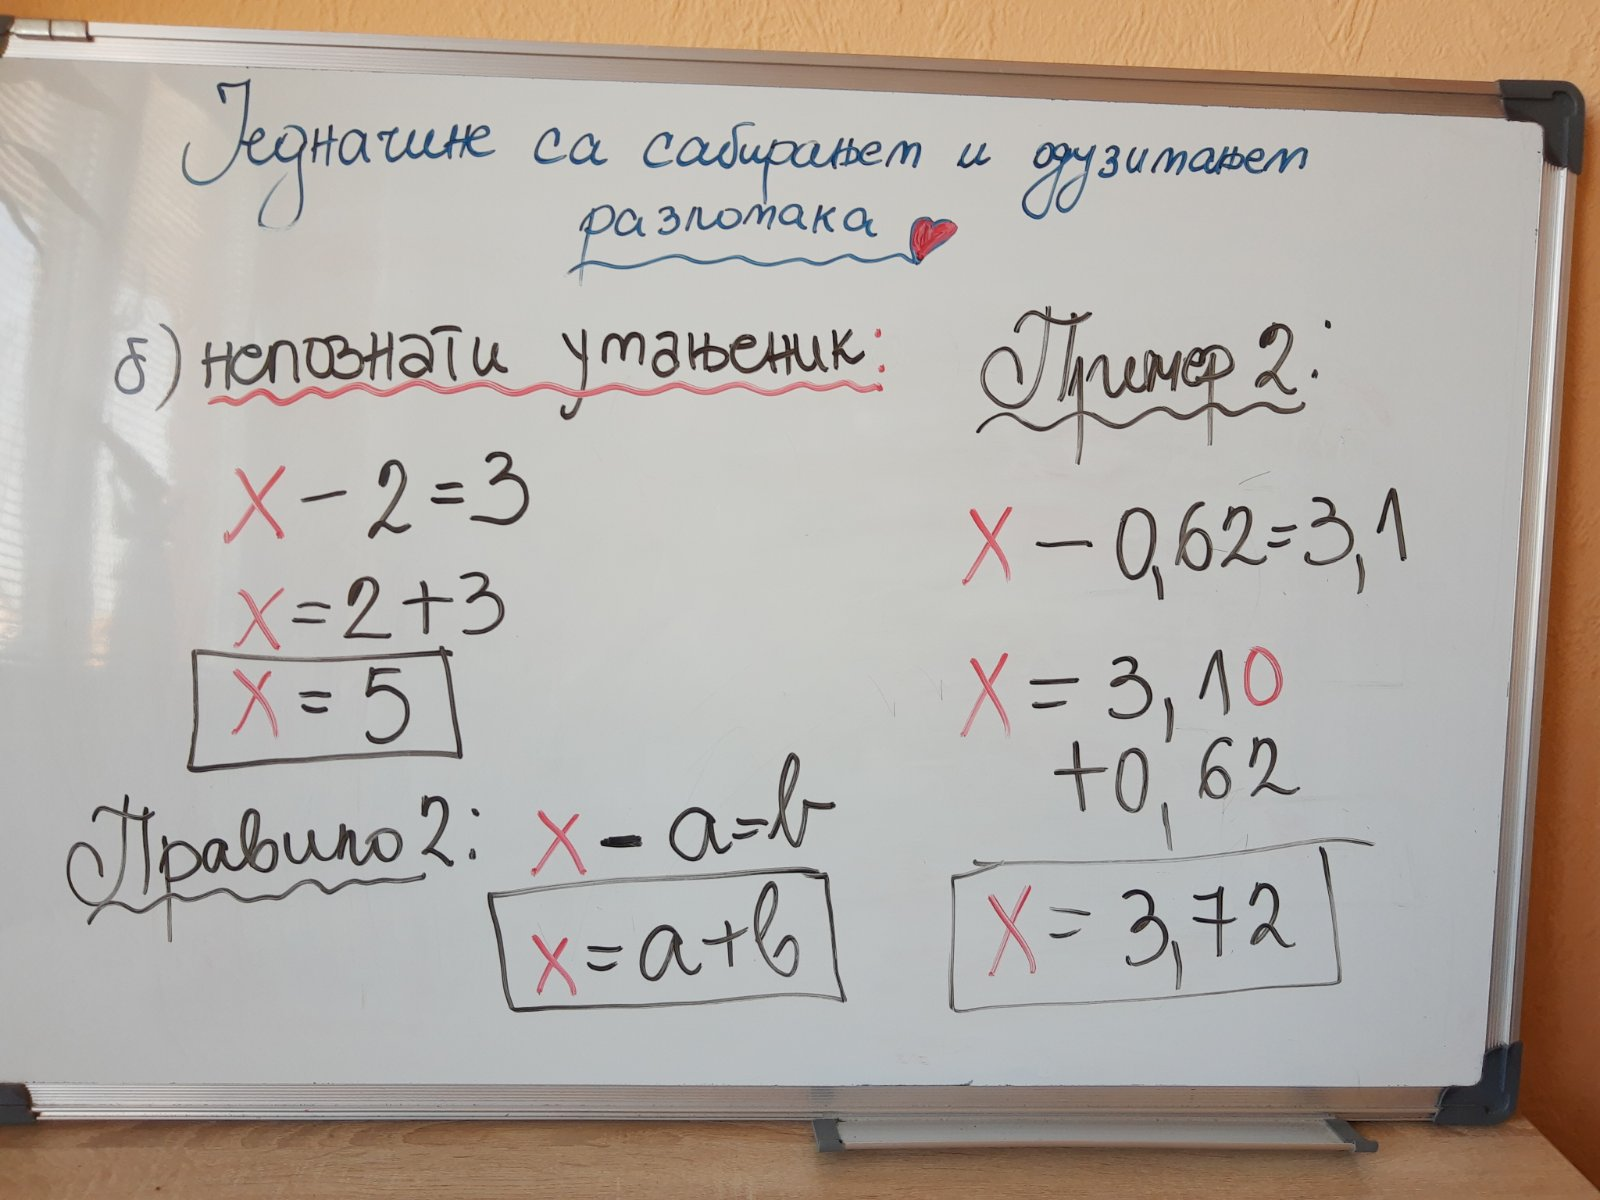 Једначине са сабирањем и одузимањем
разломака
б) непознати умањеник:
x - 2 = 3
x = 2 + 3
x = 5
Правило 2: x - a = b
x = a + b
Пример 2:
x - 0,62 = 3,1
x = 3,10
+0,62
x = 3,72